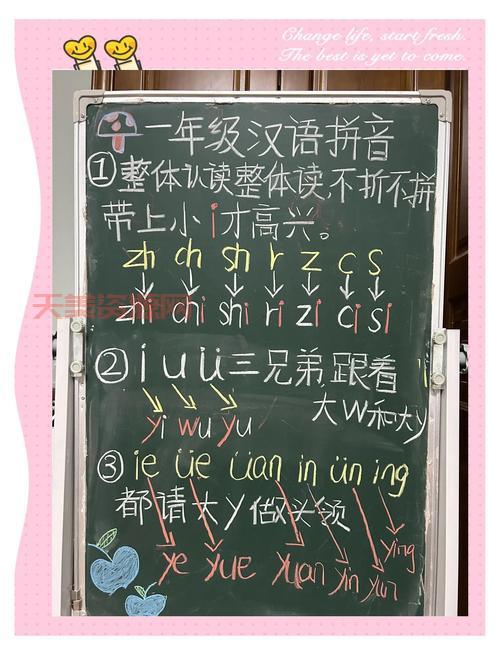 Change life, start fresh.
The best is yet to come.
一年级汉语拼音
①整体认读整体读,不折不拼
带上小i才高兴。
zh ch sh r z c s
天美资源网
zhi chi shi ri zi ci si
②i u ü三兄弟,跟着
大w和大y
yi wu yu
③ie üe üan in ün ing
都请大y做头领
ying
ye yue yuan yin yun